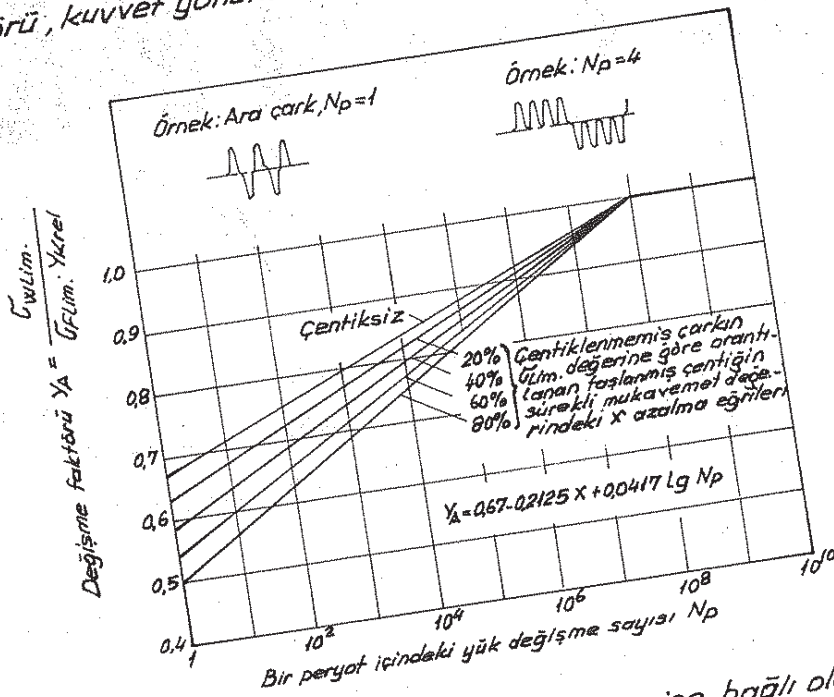 örü, kuvvet yönü
Örnek: Ara çark, Np=1
Örnek: Np=4
Değişme faktörü YA = σWLim. / σFLim. YKrel
1,0
0,9
0,8
0,7
0,6
0,5
0,4
Çentiksiz
20%
40%
60%
80%
Çentiklenmemiş çarkın
σLim. değerine göre orantı-
lanan taşlanmış çentiğin
sürekli mukavemet değe-
rindeki x azalma eğrileri
YA=0,67-0,2125 X+0,0417 Lg Np
1
10²
10⁴
10⁶
10⁸
10¹⁰
Bir peryot içindeki yük değişme sayısı Np
bağlı